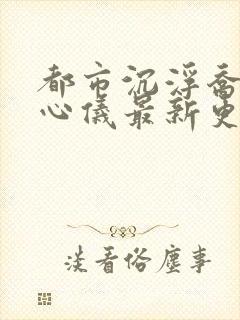 都市沉浮乔
心仪最新更
淡看俗尘事